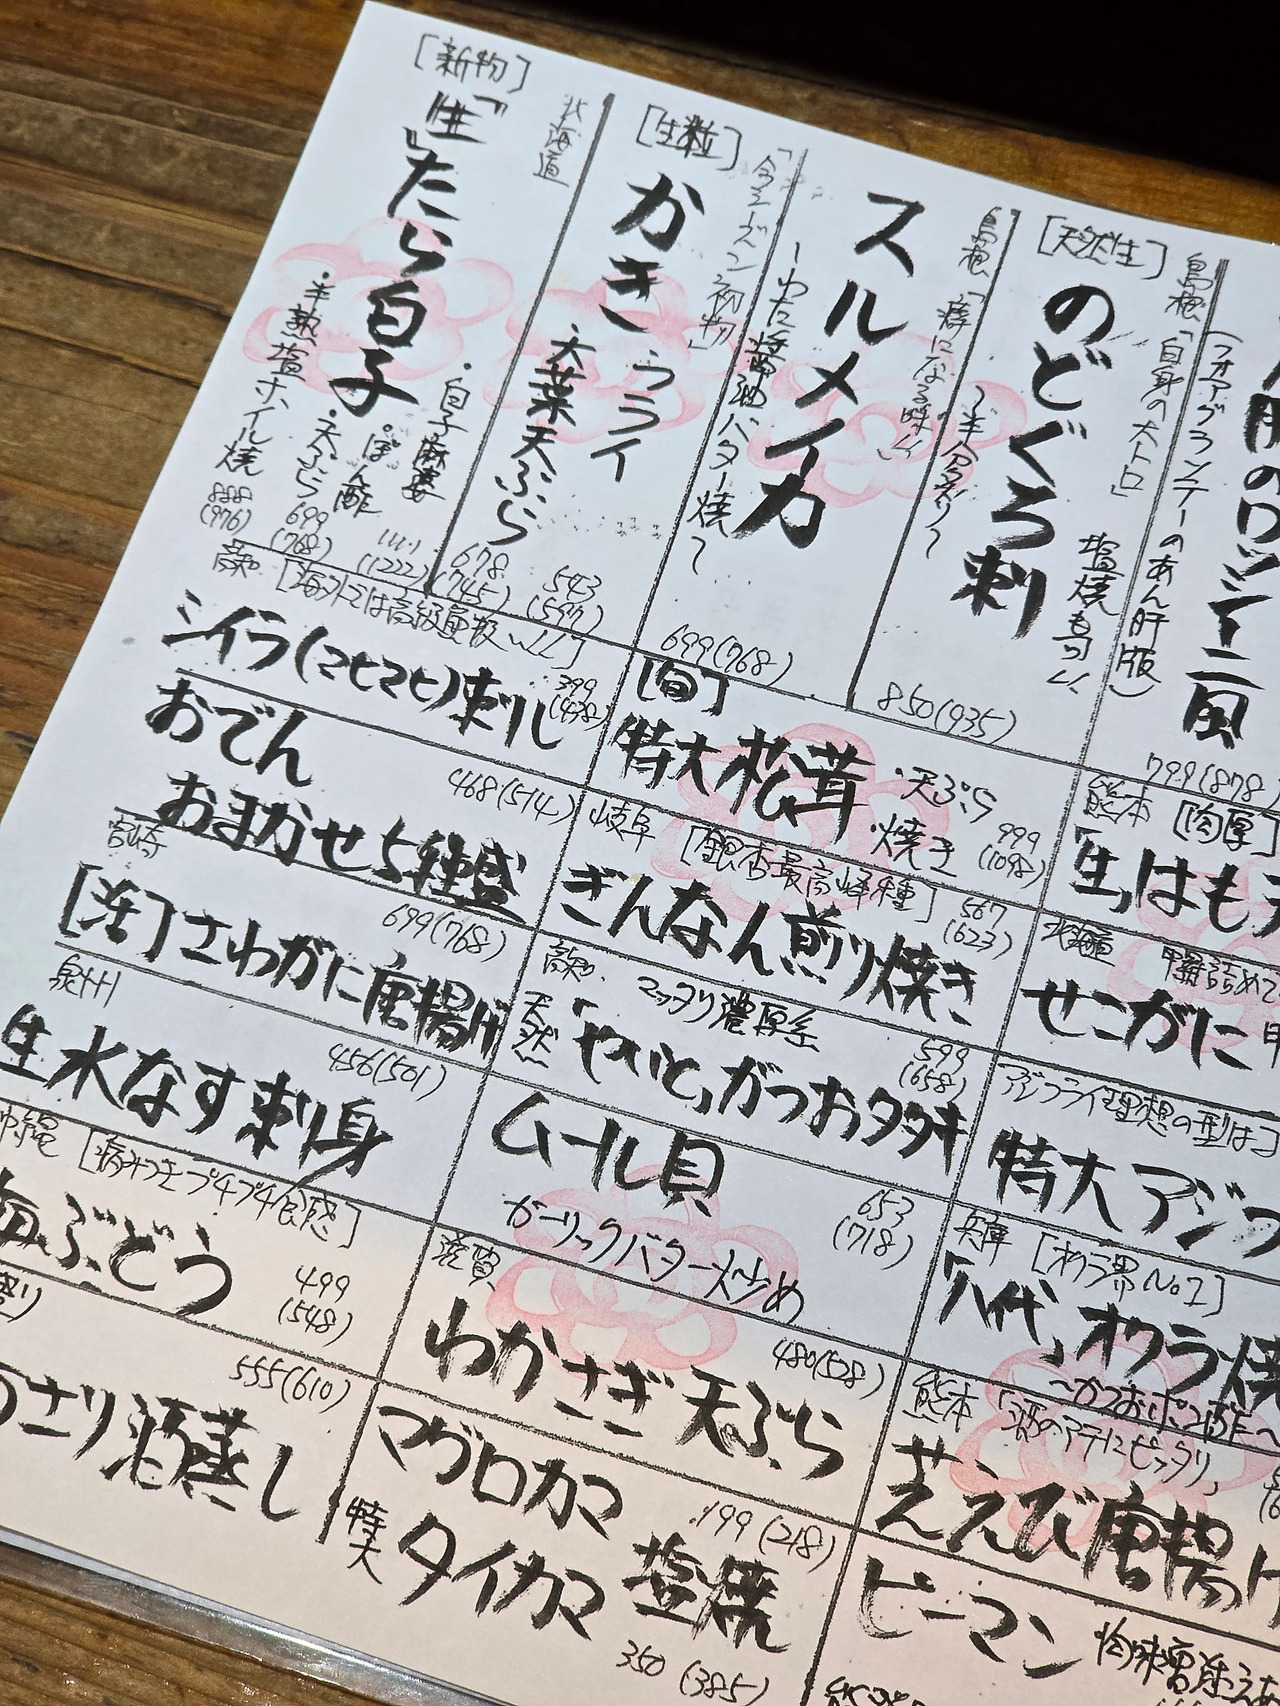 [新物]
北海道
「生」たら白子
・白子麻婆
ぽん酢
1111
(1222)
・天ぷら
699
(768)
・半熟塩ホイル焼
888
(976)
[生粒]
「今シーズン初物」
かきフライ
543
(597)
大葉天ぷら
678
(745)
スルメイカ
〜わた醤油バター焼〜
699(768)
島根「癖になる味!!」
[天然生]
島根「白身の大トロ」
のどぐろ刺
〜半身分〜
塩焼も可!!
850(935)
肝のロッシーニ風
(フォアグランテーのあん肝版)
799(878)
高知
[海外では高級魚扱い!!]
シイラ(マヒマヒ)刺し
399
(438)
[旬]
特大松茸
・天ぷら
焼き
999
(1098)
熊本 [肉厚]
「生」はも天
おでん
おまかせ5種盛
468(514)
岐阜 [銀杏最高峰種]
ぎんなん煎り焼き
567
(623)
北海道
甲羅詰めて
せこがに
宮崎
[活]さわがに唐揚げ
699(768)
高知
マッタリ濃厚系
天然「やいと」がつおタタキ
599
(658)
アジフライ理想の型は
特大アジフ
泉州
生水なす刺身
456(501)
ムール貝
ガーリックバター炒め
653
(718)
兵庫 [オクラ界No.1]
「八代」オクラ焼
〜かつおポン酢〜
沖縄 [病みつきプチプチ食感]
海ぶどう
499
(548)
滋賀
わかさぎ天ぷら
480(528)
熊本「酒のアテにピッタリ」
芝えび唐揚げ
あさり酒蒸し
555(610)
マグロカマ
199(218)
特大
タイカマ
塩焼
350(385)
ピーマン
肉味噌